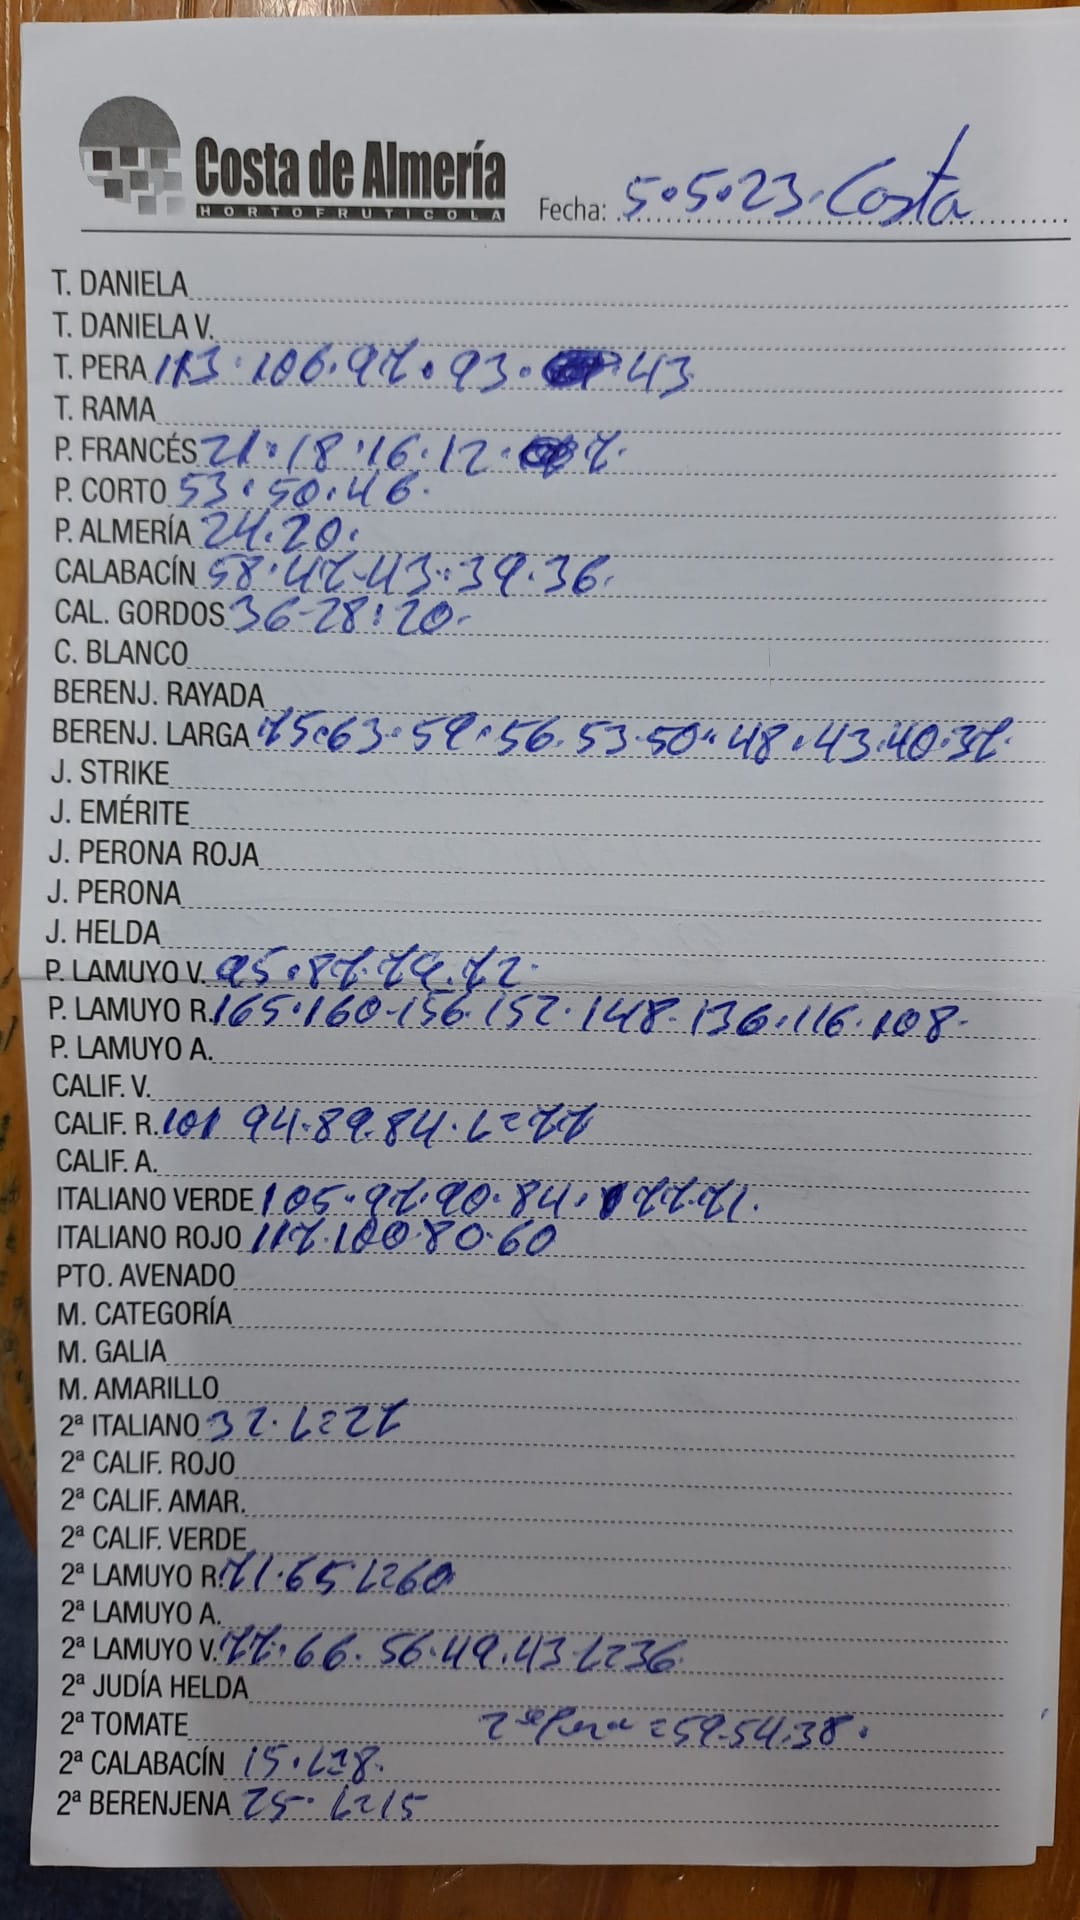 Costa de Almería
HORTOFRUTICOLA
Fecha: 5.5.23. Costa
T. DANIELA
T. DANIELA V.
T. PERA 113.106.97.93.43
T. RAMA
P. FRANCÉS 21.18.16.12.7.
P. CORTO 53.50.46.
P. ALMERÍA 24.20.
CALABACÍN 58.47-43.39.36.
CAL. GORDOS 36-28.20.
C. BLANCO
BERENJ. RAYADA
BERENJ. LARGA 75.63.59.56.53.50.48.43.40.37.
J. STRIKE
J. EMÉRITE
J. PERONA ROJA
J. PERONA
J. HELDA
P. LAMUYO V. 95.87.79.72.
P. LAMUYO R. 165.160-156.152.148.136.116.108.
P. LAMUYO A.
CALIF. V.
CALIF. R. 101 94.89.84.L=77
CALIF. A.
ITALIANO VERDE 105.97.90.84.77.71.
ITALIANO ROJO 117.100.80.60
PTO. AVENADO
M. CATEGORÍA
M. GALIA
M. AMARILLO
2ª ITALIANO 32.L=27
2ª CALIF. ROJO
2ª CALIF. AMAR.
2ª CALIF. VERDE
2ª LAMUYO R. 71.65 L=60
2ª LAMUYO A.
2ª LAMUYO V. 77.66.56.49.43 L=36
2ª JUDÍA HELDA
2ª TOMATE 2ª Pera = 59.54.38.
2ª CALABACÍN 15.L=8.
2ª BERENJENA 25. L=15